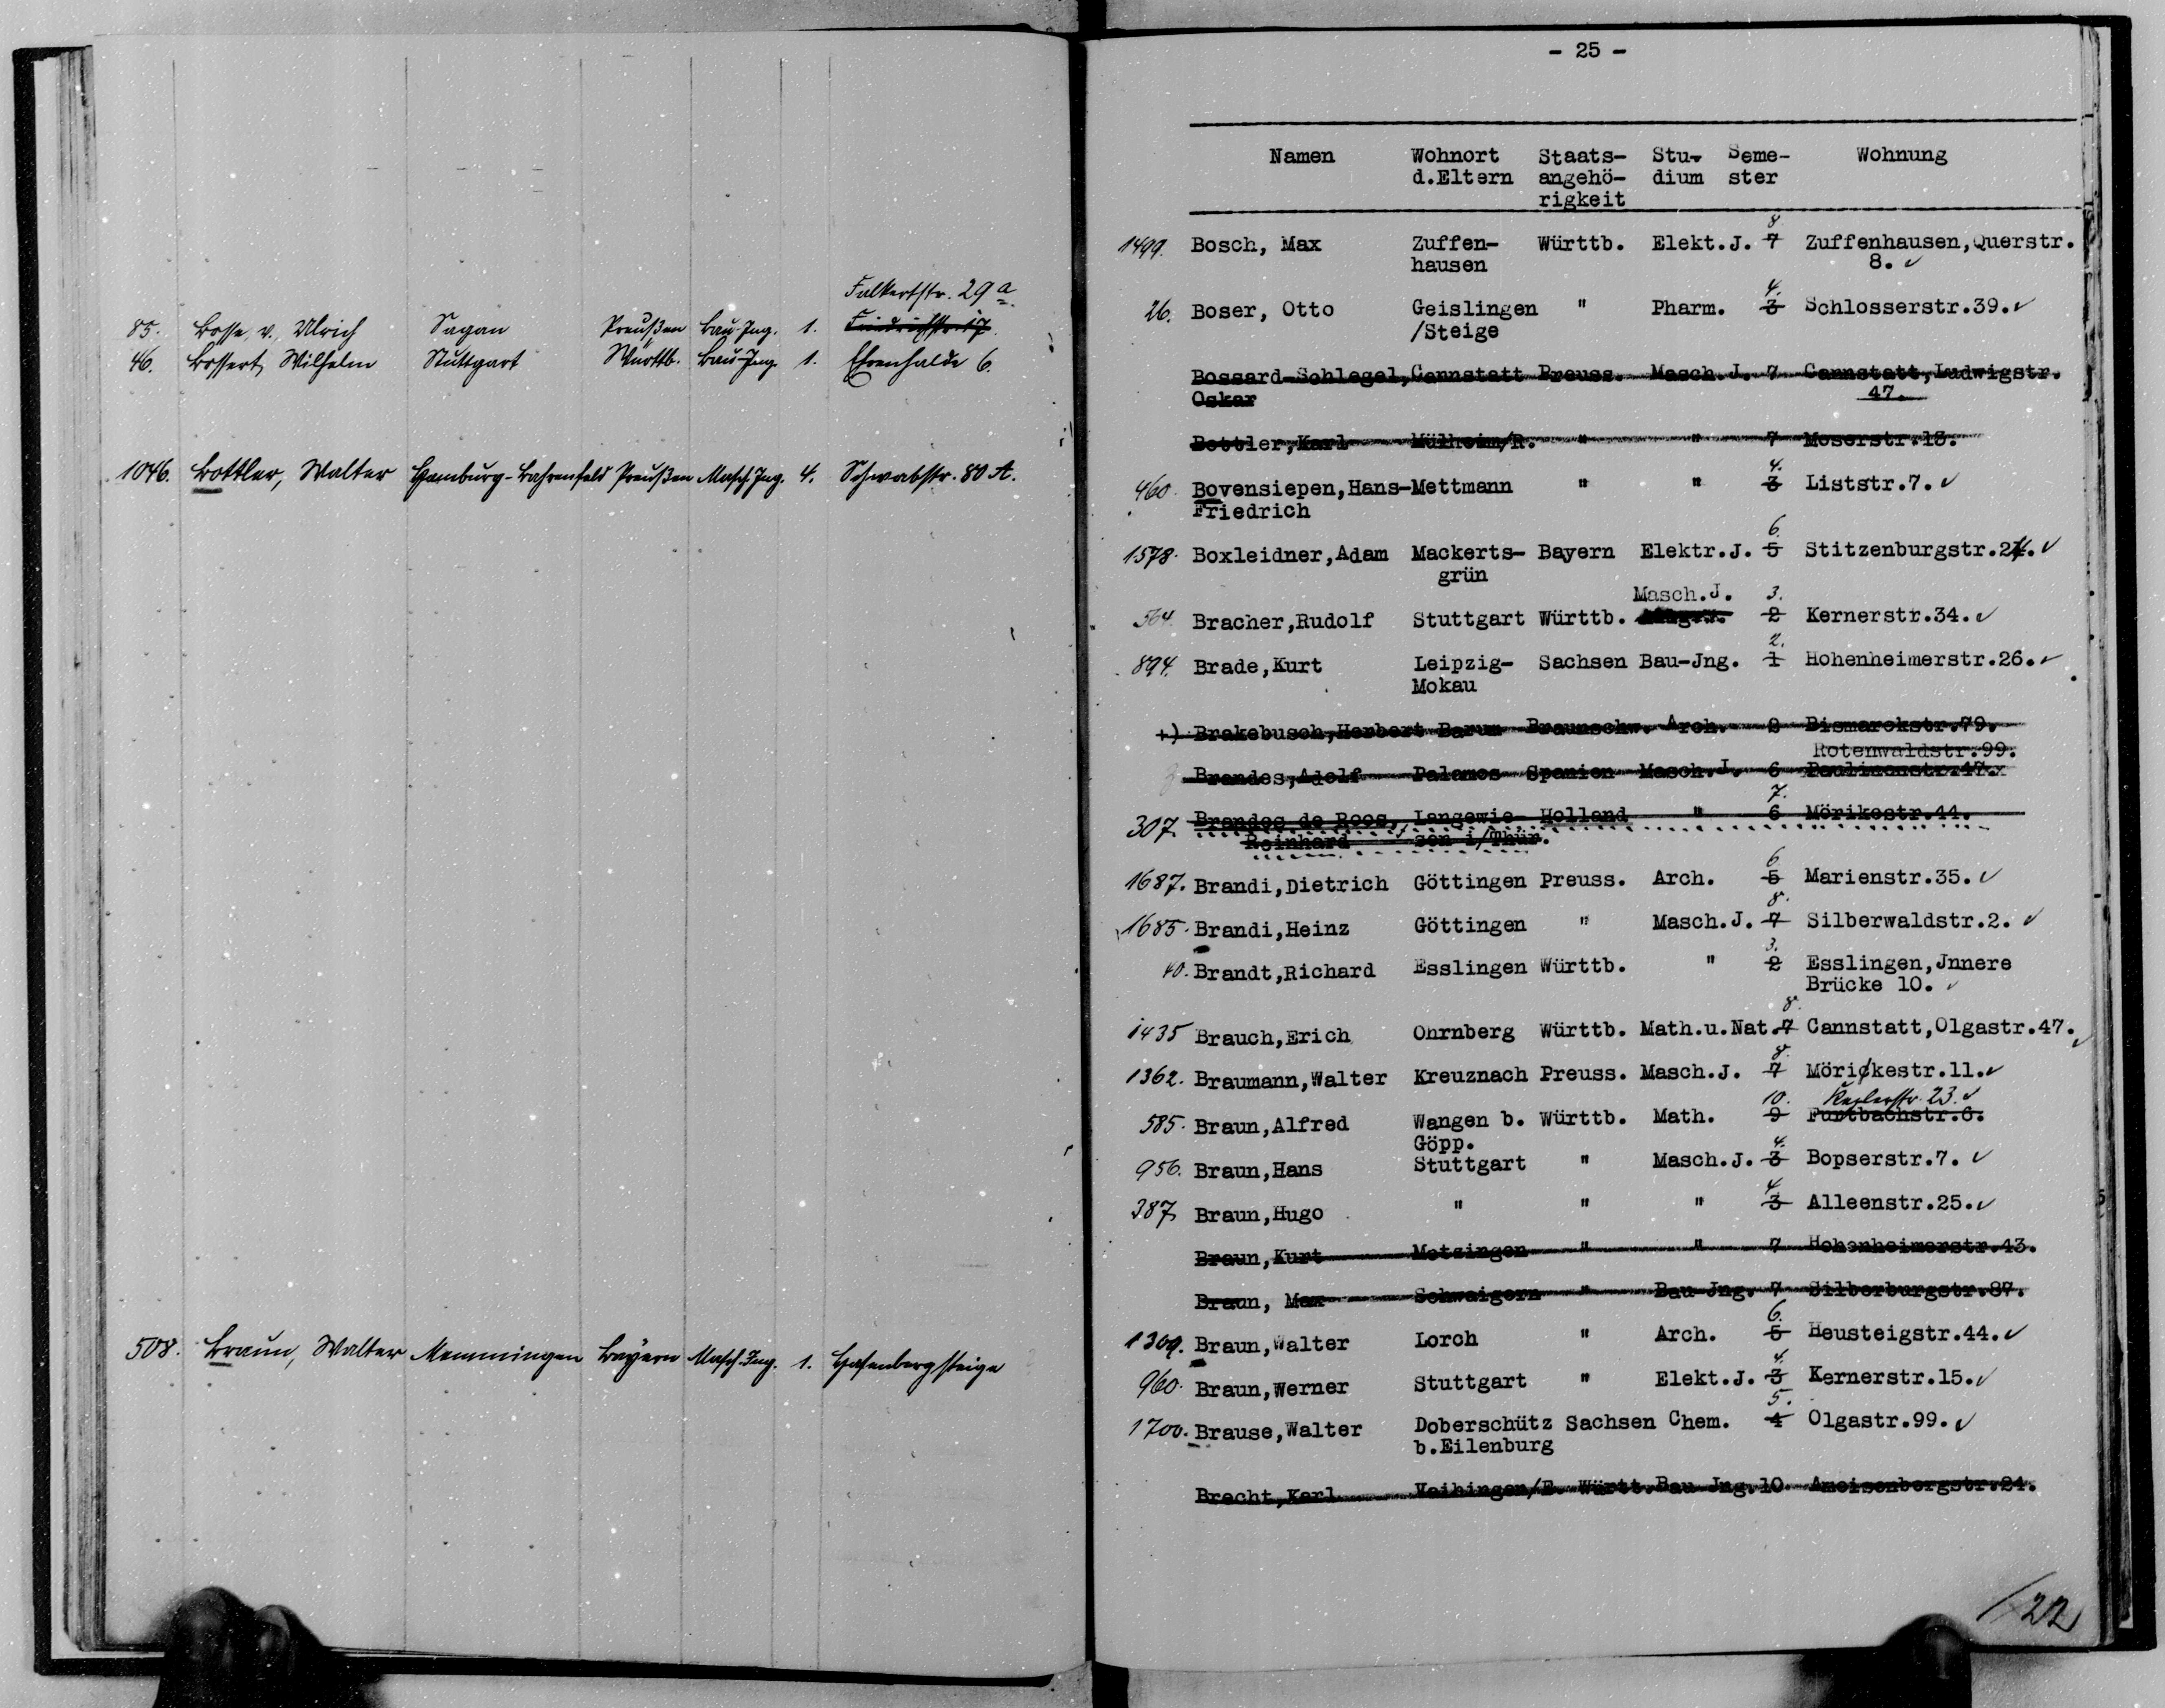 Falkertstr. 29a
85. Bosse, v., Ulrich Sagan Preußen Bau-Ing. 1. Friedrichstr. 17
46. Bossert, Wilhelm Stuttgart Württb. Bau-Ing. 1. Ehrenhalde 6.
1046. Bottler, Walter Hamburg-Bahrenfeld Preußen Masch. Ing. 4. Schwabstr. 80 A.
508. Braun, Walter Memmingen Bayern Masch.-Ing. 1. Hasenbergsteige
- 25 -
Namen Wohnort Staats- Stu- Seme- Wohnung
d.Eltern angehö- dium ster
rigkeit
8
1499. Bosch, Max Zuffen- Württb. Elekt.J. 7 Zuffenhausen,Querstr.
hausen 8. ✓
4.
26. Boser, Otto Geislingen " Pharm. 3 Schlosserstr.39.✓
/Steige
Bossard-Schlegel,Cannstatt Preuss. Masch.J. 7 Cannstatt,Ludwigstr.
Oskar 47.
Bottler,Karl Mülheim/R. " " 7 Moserstr.13.
4.
460. Bovensiepen,Hans-Mettmann " " 3 Liststr.7.✓
Friedrich
6.
1578. Boxleidner,Adam Mackerts- Bayern Elektr.J. 5 Stitzenburgstr.24.✓
grün
Masch.J. 3.
564. Bracher,Rudolf Stuttgart Württb. 2 Kernerstr.34.✓
2.
894. Brade,Kurt Leipzig- Sachsen Bau-Jng. 1 Hohenheimerstr.26.✓
Mokau
+) Brakebusch,Herbert Barum Braunschw. Arch. 2 Bismarckstr.79.
Rotenwaldstr.99.
Brandes,Adolf Palamos Spanien Masch.J. 6 Paulinenstr.47.
7.
307. Brandes de Roos, Langewie- Holland " 6 Mörikestr.44.
Reinhard sen i/Thür.
6.
1687. Brandi,Dietrich Göttingen Preuss. Arch. 5 Marienstr.35.✓
8.
1685. Brandi,Heinz Göttingen " Masch.J. 7 Silberwaldstr.2. ✓
3.
40. Brandt,Richard Esslingen Württb. " 2 Esslingen,Jnnere
Brücke 10. ✓
8.
1435 Brauch,Erich Ohrnberg Württb. Math.u.Nat.7 Cannstatt,Olgastr.47.✓
8.
1362. Braumann,Walter Kreuznach Preuss. Masch.J. 7 Mörickestr.11.✓
10. Keplerstr. 23.✓
585. Braun,Alfred Wangen b. Württb. Math. 9 Furtbachstr.6.
Göpp.
4.
956. Braun,Hans Stuttgart " Masch.J. 3 Bopserstr.7. ✓
4.
387. Braun,Hugo " " " 3 Alleenstr.25.✓
Braun,Kurt Metzingen " " 7 Hohenheimerstr.43.
Braun, Max Schwaigern " Bau Jng. 7 Silberburgstr.87.
6.
1309. Braun,Walter Lorch " Arch. 5 Heusteigstr.44.✓
4.
960. Braun,Werner Stuttgart " Elekt.J. 3 Kernerstr.15.✓
5.
1700. Brause,Walter Doberschütz Sachsen Chem. 4 Olgastr.99.✓
b.Eilenburg
Brecht,Karl Vaihingen/E. Württ.Bau Jng.10 Ameisenbergstr.24.
/22